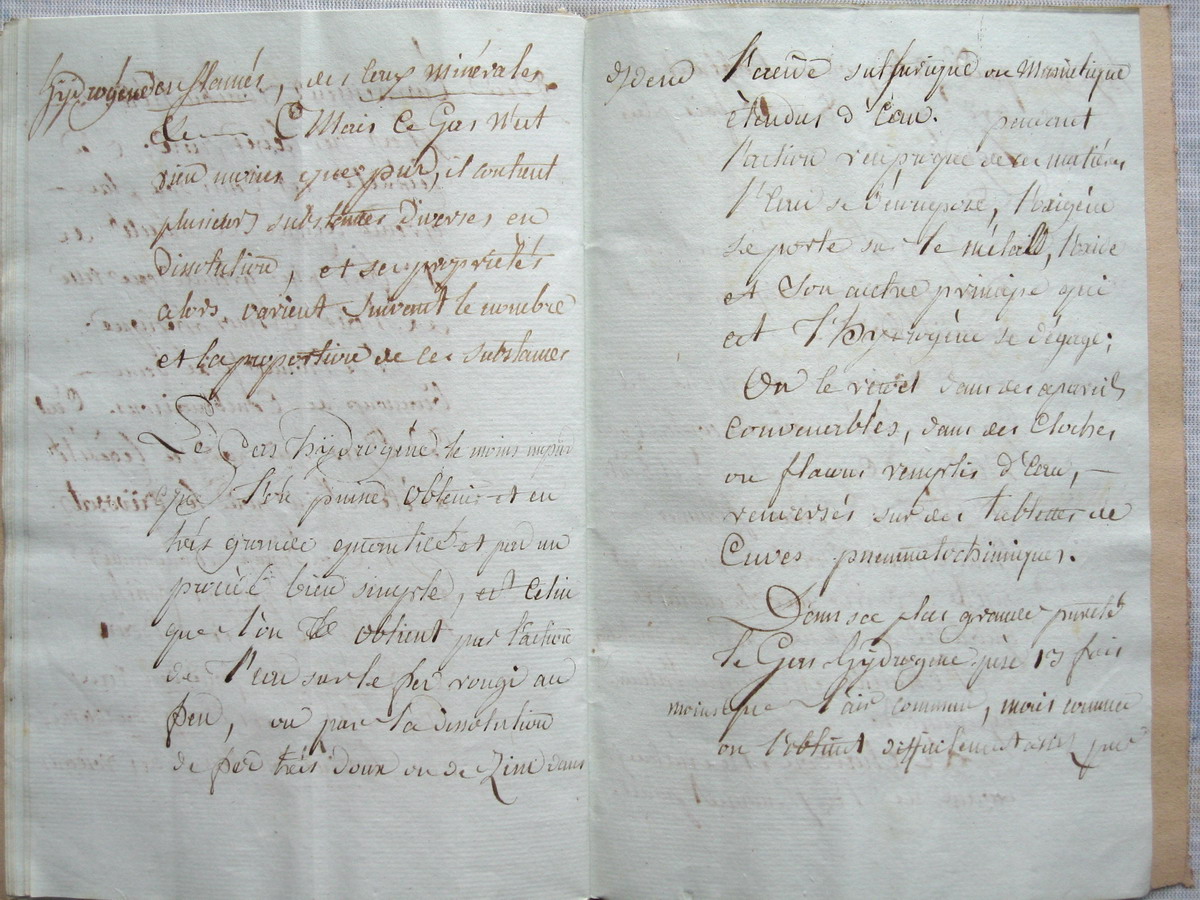 hydrogène des flamés, des Eaux minérales
&c — Mais Ce Gas n'est
rien moins que pur, il contient
plusieurs substances diverses en
Dissolution, et ses propriétés
alors varient suivant le nombre
et la proportion de ces substances
Le Gas hydrogène le moins impur
que l'on puisse obtenir et en
très grande quantité et par un
procédé bien simple, est Celui
que l'on obtient par l'action
de l'eau sur le fer rougi au
feu, ou par la dissolution
de fer très doux ou de Zinc dans
l'acide sulfurique ou Muriatique
ètendus d'Eau. pendant
l'action réciproque de ces matières
l'Eau se décompose, l'oxigène
se porte sur le métall, l'oxide
et Son autre principe qui
est l'hydrogène se dégage;
On le reçoit dans des apareils
Convenables, dans des Cloches
ou flacons remplis d'Eau, —
renversés sur des tablettes de
Cuves pneumatochimiques.
Dans sa plus grande pureté
le Gas hydrogène pèse 13 fois
moins que l'air commun, mais comme
on l'obtient difficilement assés pur